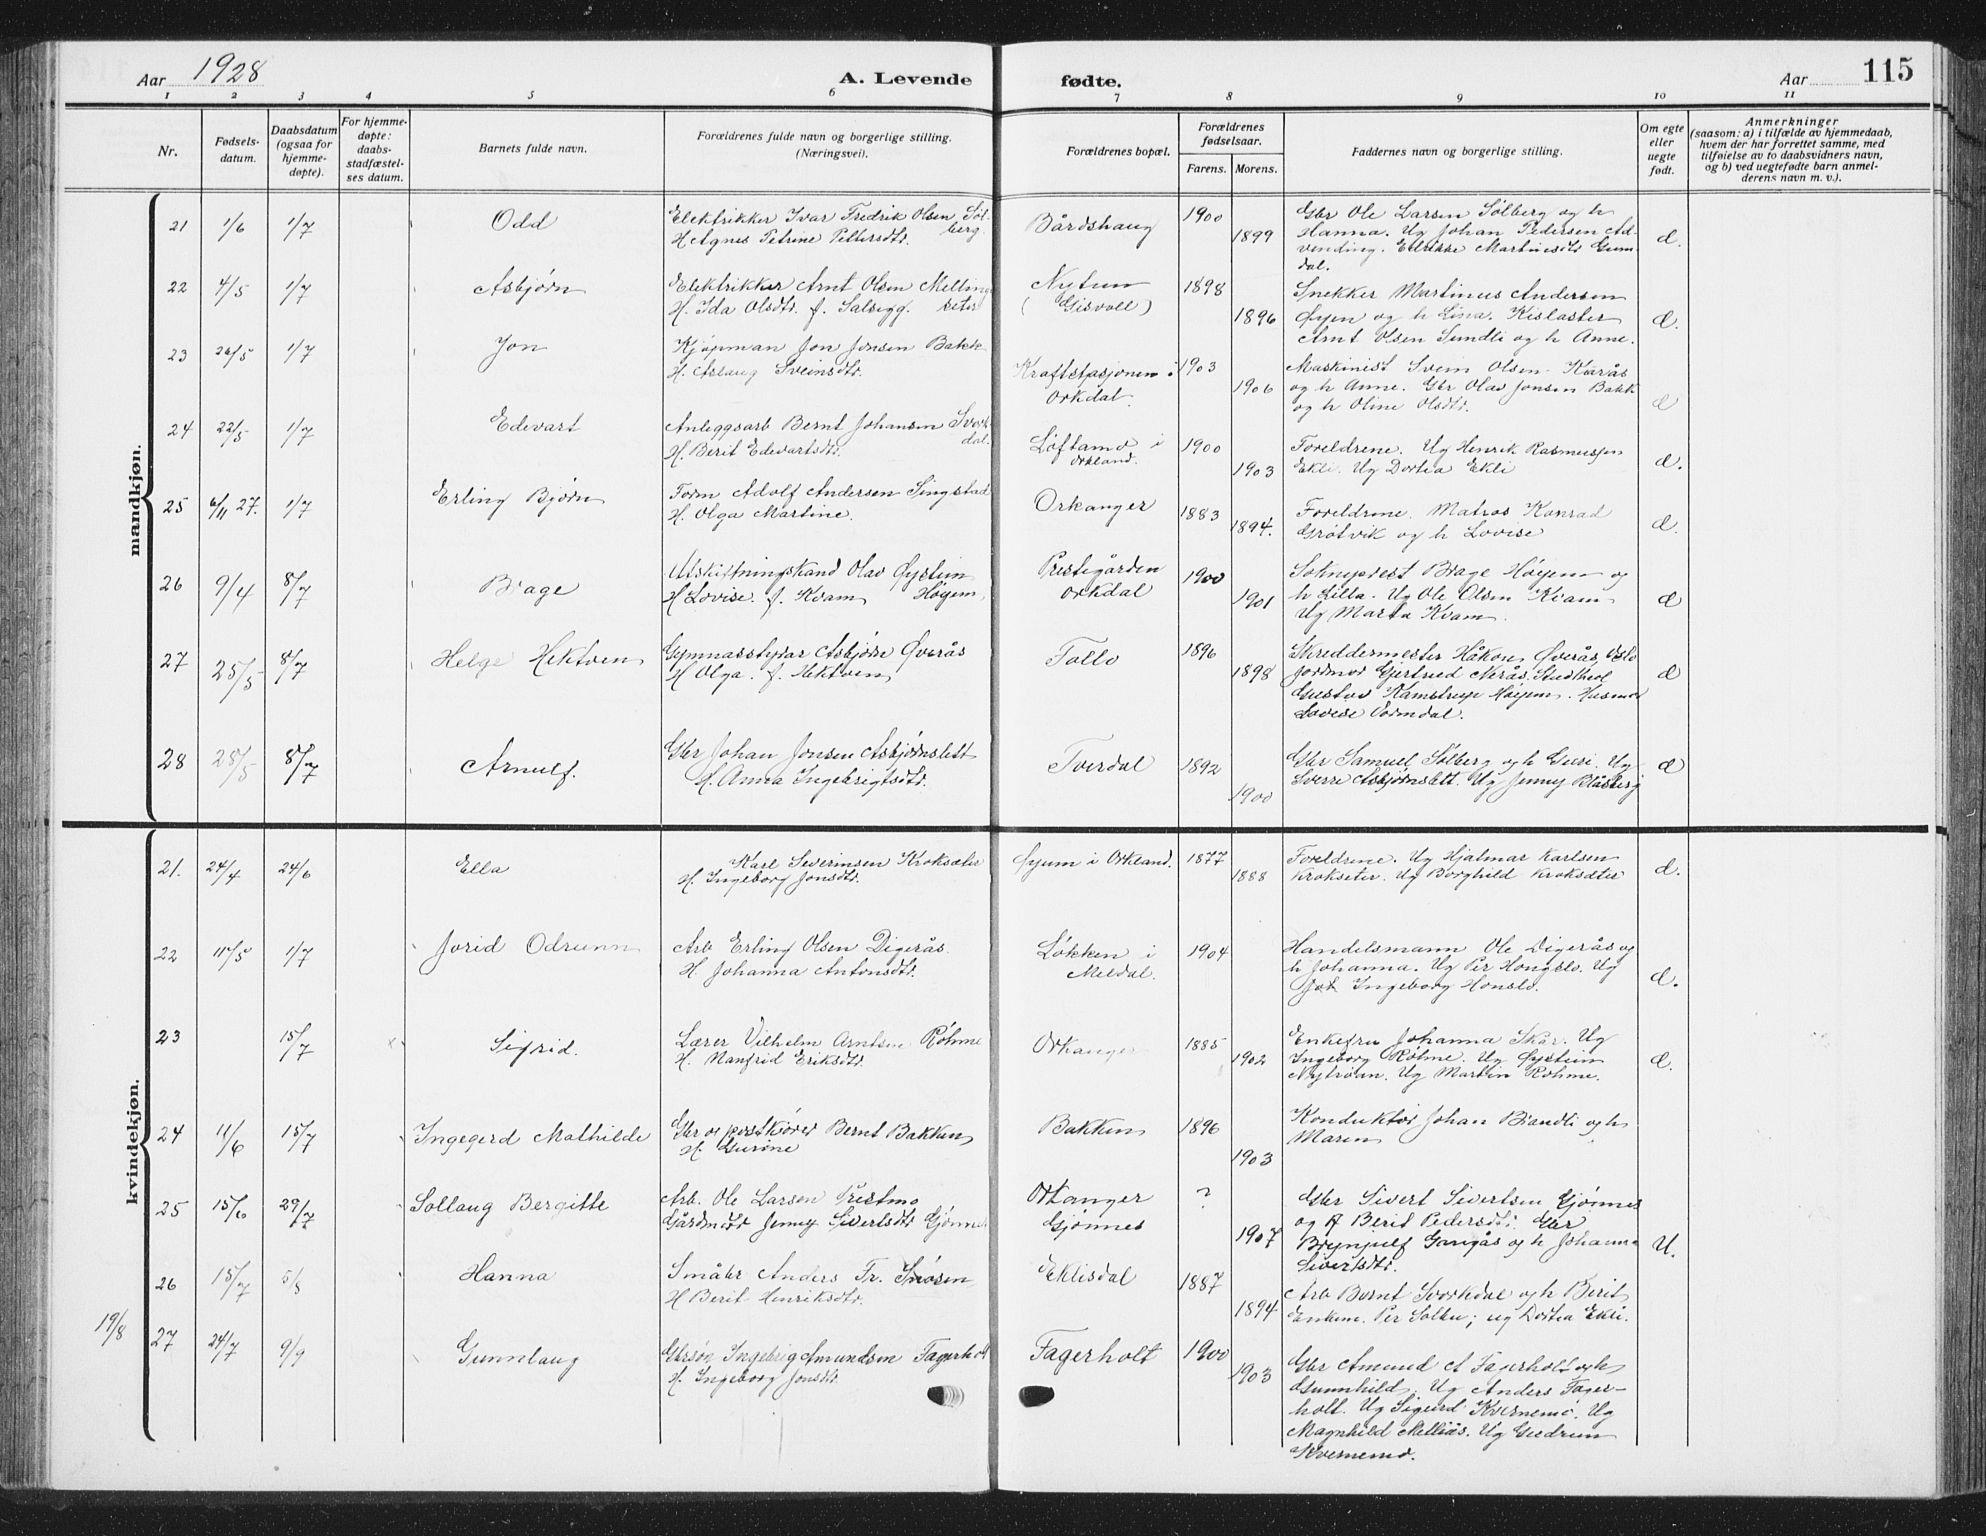 Aar 1928
A. Levende
fødte.
Aar
115
1 2 3 4 5 6 7 8 9 10 11
Nr.
Fødsels-
datum.
Daabsdatum
(ogsaa for
hjemme-
døpte).
For hjemme-
døpte:
daabs-
stadfæstel-
ses datum.
Barnets fulde navn.
Forældrenes fulde navn og borgerlige stilling.
(Næringsvei).
Forældrenes bopæl.
Forældrenes
fødselsaar.
Farens. Morens.
Faddernes navn og borgerlige stilling.
Om egte
eller
uegte
født.
Anmerkninger
(saasom: a) i tilfælde av hjemmedaab,
hvem der har forrettet samme, med
tilføielse av to daabsvidners navn,
og b) ved uegtefødte barn anmel-
derens navn m. v.).
mandkjøn.
21 1/6 1/7 Odd
Elektrikker Ivar Fredrik Olsen Søl-
berg.
H. Agnes Petrine Pettersdtr.
Bårdshaug 1900 1899
Gbr Ole Larsen Sølberg og h
Hanna. Ug Johan Pedersen Ad-
vending. Martinesdtr Gum-
dal.
d.
22 4/5 1/7 Asbjørn
Elektrikker Arnt Olsen Melling-
seter
H. Ida Olsdtr. f. Salsegg.
Nytun
(Gisvoll)
1898 1896
Snekker Martinus Andersen
Øyen og h Lina. Kislaster
Arnt Olsen Sundli og h Anne.
d.
23 26/5 1/7 Jon
Kjøpman Jon Jonsen Bakk
H. Aslaug Sveinsdtr.
Kraftstasjonen i
Orkdal.
1903 1906
Maskinist Svein Olsen Karås
og h Anne. Gbr Olav Jonsen Bakk
og h Oline Olsdtr.
d
24 22/5 1/7 Edevart
Anleggsarb Bernt Johansen Svork-
dal.
H. Berit Edevartsdtr.
Løftamo i
Orkland.
1900 1903
Foreldrene. Ug Henrik Rasmussen
Ekli. Ug Dortea Ekli
d.
25 6/11 27. 1/7 Erling Bjørn
Form Adolf Andersen Singstad
H. Olga Martine.
Orkanger 1883 1894.
Foreldrene. Matros Konrad
Grøtvik og h Lovise
d.
26 9/4 8/7 Brage
Utskiftningskand Olav Øystein
Høyem,
H Lovise. f. Kvam
Prestegården
Orkdal
1900 1901
Sokneprest Brage Høyem og
h Lilla. Ug Ole Olsen Kvam
Ug Marta Kvam.
d
27 25/5 8/7 Helge Hektoen
Gymnasstyrar Asbjørn Øverås
H Olga. f. Hektoen
Follo 1896 1898
Skreddermester Håkon Øverås Oslo
Jordmor Gjertrud Nerås. Studteol
Gustav Kamstrup Høyem. Husmor
Lovise Vormdal.
d
28 28/5 8/7 Arnulf.
Gbr Johan Jonsen Asbjørnslett
H. Anna Ingebrigtsdtr.
Tverdal 1892 1900
Gbr Samuel Sølberg og h Guri. Ug
Sverre Asbjørnslett. Ug Jenny Blåsberg
d
kvindekjøn.
21. 24/4 24/6 Ella
Karl Severinsen Kroksæter
H. Ingeborg Jonsdtr.
Øyum i Orkland. 1877 1888
Foreldrene. Ug Hjalmar Karlsen
Krokseter. Ug Borghild Kroksæter
d.
22 11/5 1/7 Jorid Odrunn
Arb Erling Olsen Digerås.
H. Johanna Antonsdtr.
Løkken i
Meldal.
1904
Handelsmann Ole Digerås og
h Johanna. Ug Per Hongslo. Ug
Ingeborg Honslo.
d.
23 15/7 Sigrid.
Lærer Vilhelm Arntsen Røhme
H. Manfrid Eriksdtr.
Orkanger 1885 1902
Enkefru Johanna Skår. Ug
Ingeborg Røhme. Ug Øystein
Nytrøan. Ug Martin Røhme.
d.
24 11/6 15/7 Ingegerd Mathilde
Gbr og postkjører Bernt Bakken
H. Gurine
Bakken 1896 1903
Konduktør Johan Brandli og h
Maren
25 15/6 29/7 Sollaug Bergitte
Arb. Ole Larsen Prestmo
Gårdmdtr Jenny Sivertsdtr Gjønnes
Orkanger
Gjønnes
? 1907
Gbr Sivert Sivertsen Gjønnes
og h Berit Pedersdtr. Gbr
Brynjulf Gangås og h Johanna
Sivertsdtr.
U.
26 15/7 5/8 Hanna
Småbr Anders Fr. Snøsen
H Berit Henriksdtr.
Eklisdal 1887 1894
Arb Bernt Svorkdal og h Berit
Enkem. Per Solbu; ug Dortea Ekli.
19/8
27 24/7 9/9 Gunnlaug
Gbrsøn Ingebrig Amundsen Fagerholt
H. Ingeborg Jonsdtr.
Fagerholt 1900 1903
Gbr Amund A Fagerholt og h
Gunnhild. Ug Anders Fager-
holt. Ug Sigurd Kvernemo. Ug
Magnhild Melliås. Ug Gudrun
Kvernemo.